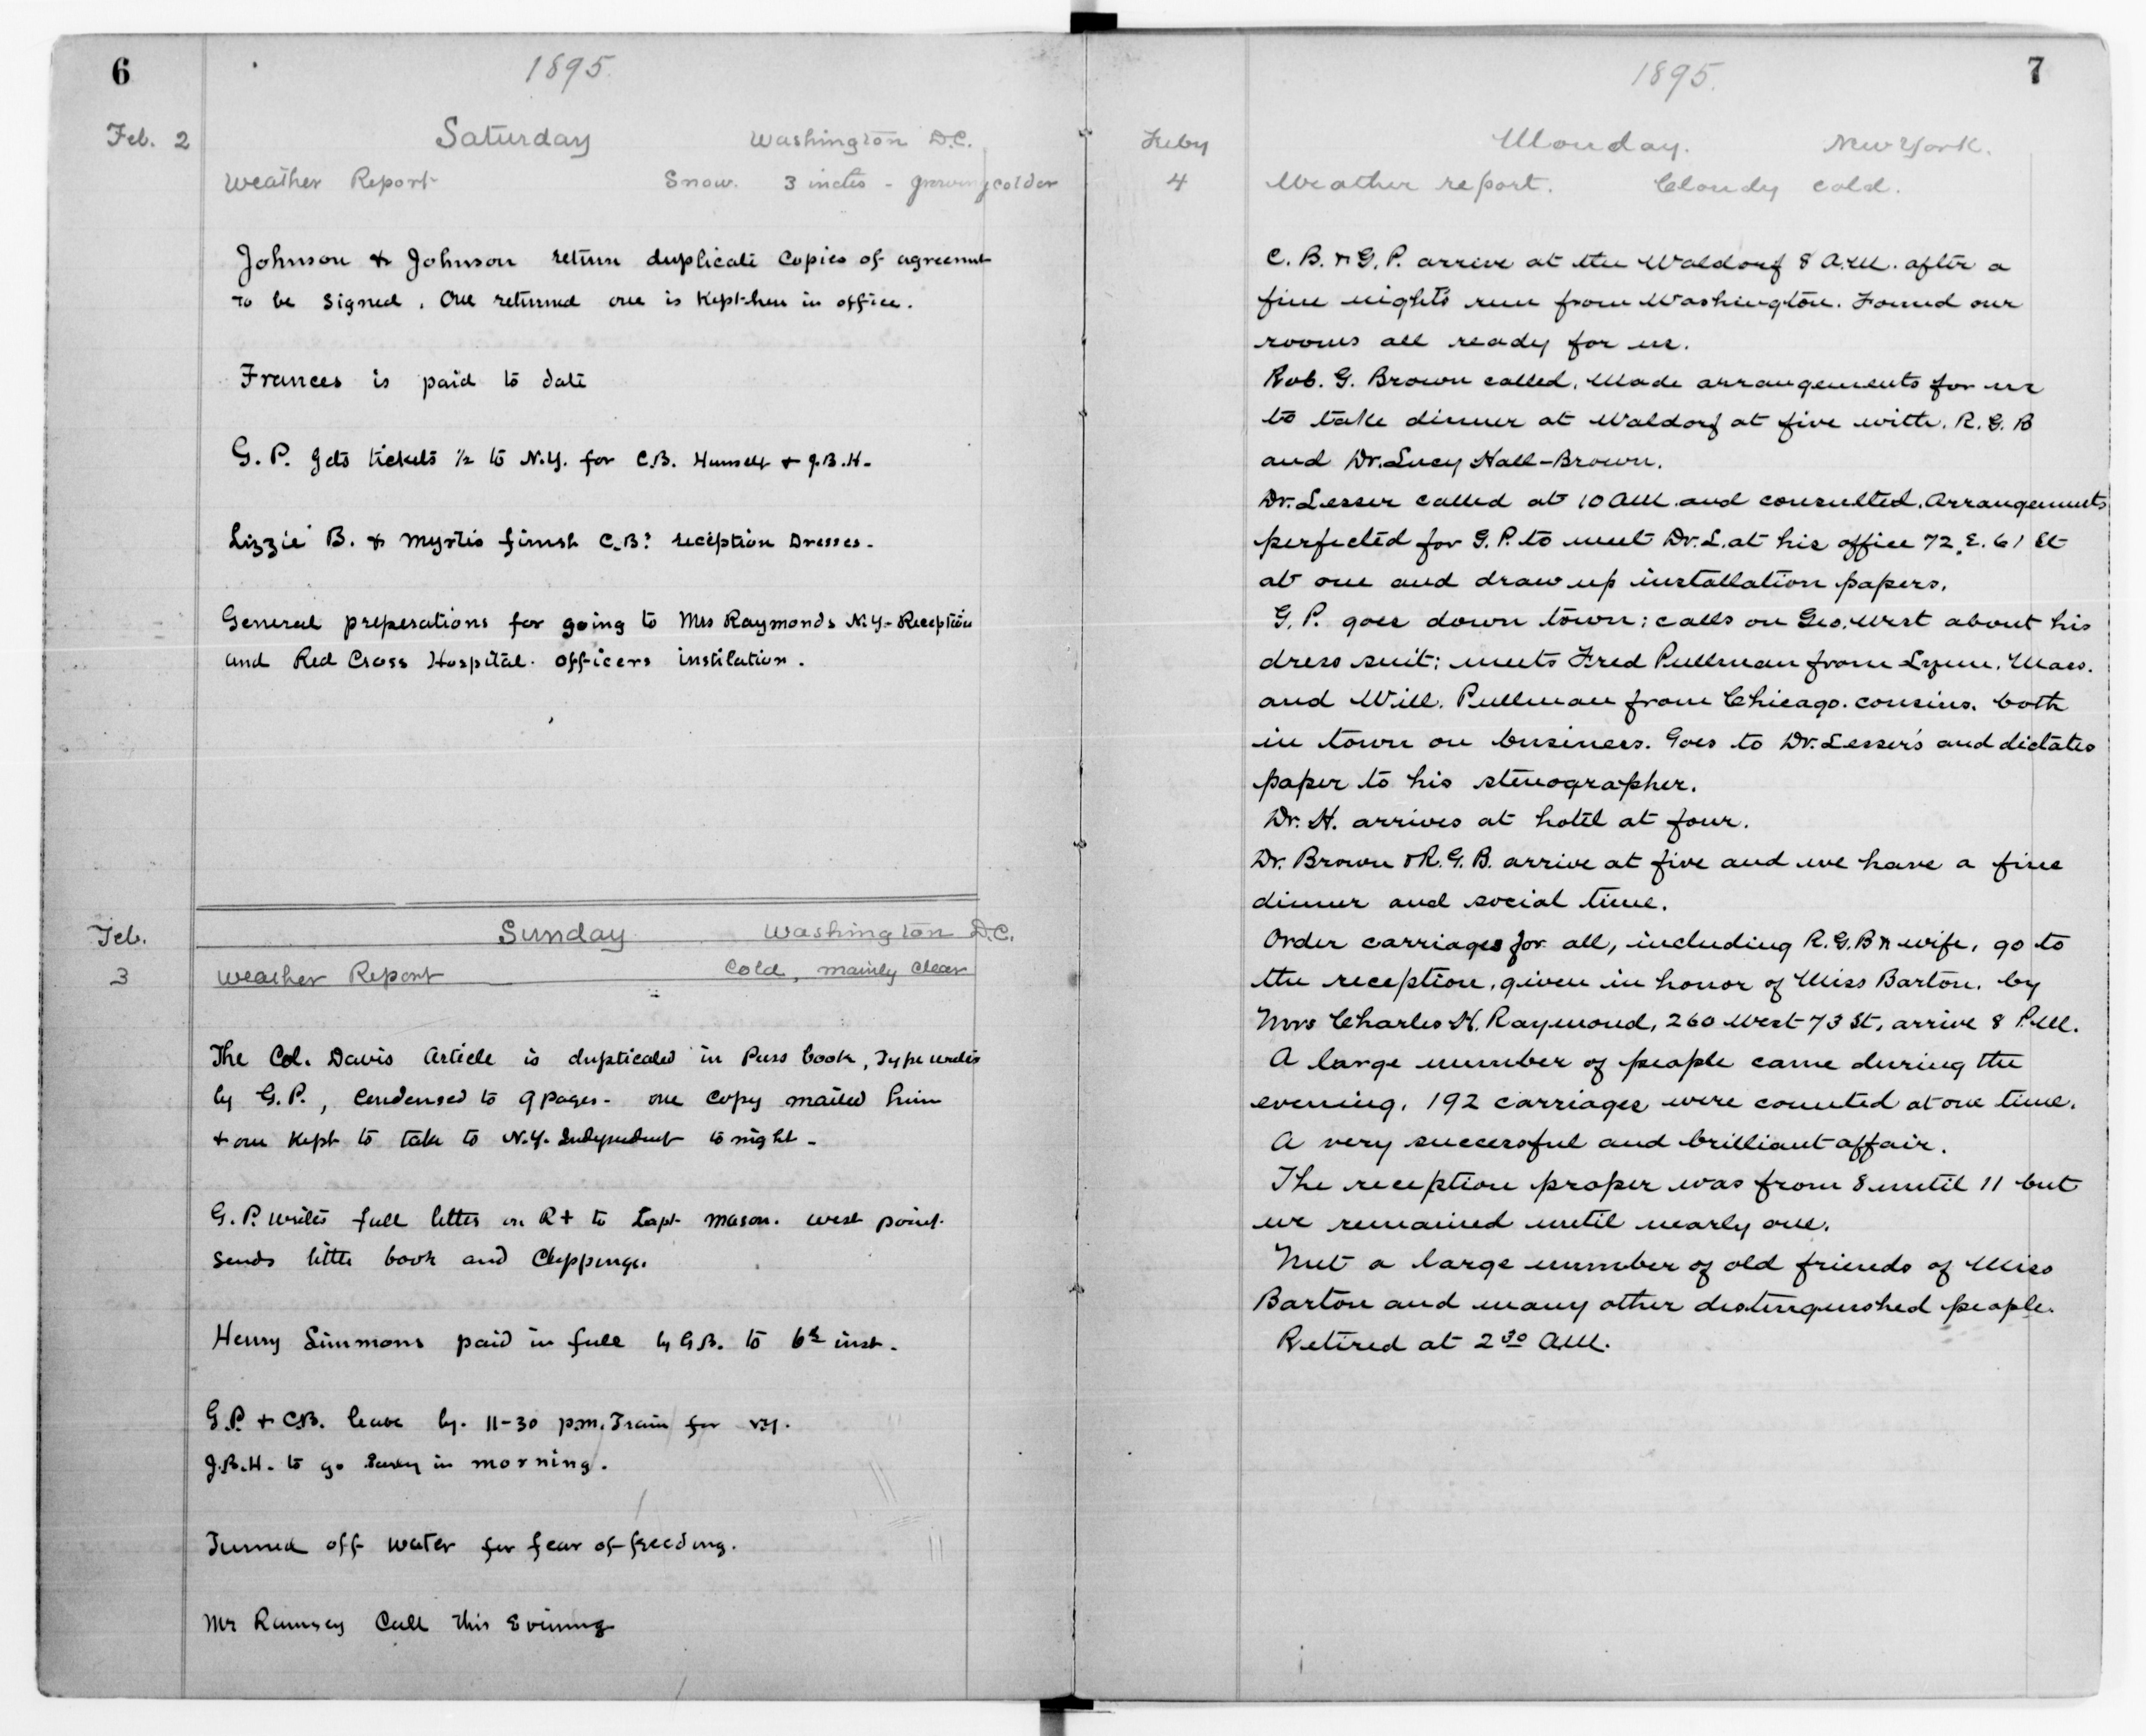 6
1895.
Feb. 2 Saturday Washington D.C.
Weather Report Snow. 3 inches - growing colder
Johnson & Johnson return duplicate Copies of agreement
to be signed. One returned one is kept here in office.
Frances is paid to date
G. P. gets tickets ½ to N.Y. for C.B. Himself & J.B.H.
Lizzie B. & Myrtis finish C.B's reception Dresses.
General preperations for going to Mrs Raymonds N.Y. Reception
and Red Cross Hospital. officers instilation.
Feb. Sunday Washington D.C.
3 Weather Report Cold, mainly clear
The Col. Davis Article is duplicated in Press book, Type
by G. P., Condensed to 9 pages - one copy mailed him
& one kept to take to N.Y. Independent to night -
G. P. writes full letter on R+ to Capt. Mason. West point.
Sends little book and Clippings.
Henry Simmons paid in full by G.B. to 6th inst.
G.P. & C.B. leave by. 11-30 p.m. Train for N.Y.
J.B.H. to go in morning.
Turned off water for fear of freezing.
Mr Ramsey Call this Evening
7
1895.
Feby Monday. New York.
4 Weather report. Cloudy cold.
C. B. & G. P. arrive at the Waldorf 8 A.M. after a
fine night's run from Washington. Found our
rooms all ready for us.
Rob. G. Brown called. Made arrangements for us
to take dinner at Waldorf at five with. R. G. B
and Dr. Lucy Hall-Brown.
Dr. Lesser called at 10 AM. and consulted. Arrangements
perfected for G. P. to meet Dr. L. at his office 72. E. 61 St
at one and draw up installation papers.
G. P. goes down town: calls on Geo. West about his
dress suit: meets Fred Pullman from Lynn, Mass.
and Will. Pullman from Chicago. cousins. both
in town on business. Goes to Dr. Lesser's and dictates
paper to his stenographer.
Dr. H. arrives at hotel at four.
Dr. Brown & R. G. B. arrive at five and we have a fine
dinner and social time.
Order carriages for all, including R. G. B & wife, go to
the reception, given in honor of Miss Barton. by
Mrs Charles H. Raymond, 260 West 73 St, arrive 8 P.M.
A large number of people came during the
evening, 192 carriages were counted at one time.
A very successful and brilliant affair.
The reception proper was from 8 until 11 but
we remained until nearly one.
Met a large number of old friends of Miss
Barton and many other distinguished people.
Retired at 2 30 AM.